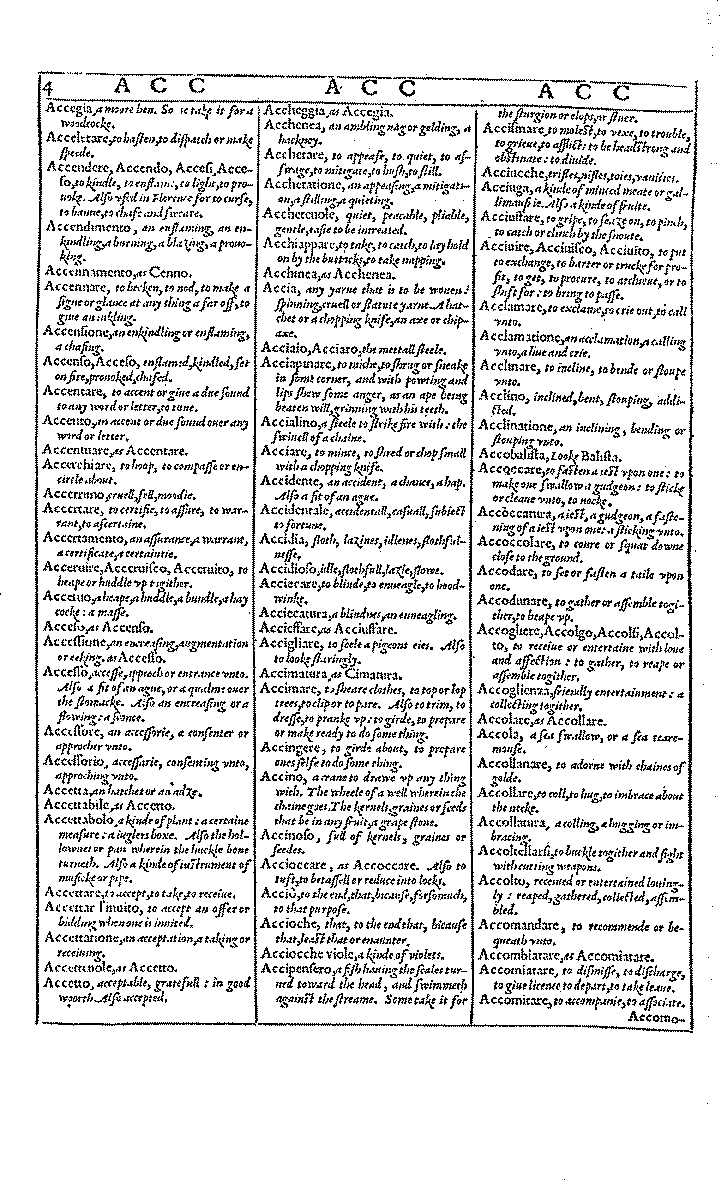 4 A C C A C C A C C
Accegia, a moore hen. So ie take it for a
woodcocke.
Accelerare, to hasten, to dispatch or make
speede.
Accendere, Accendo, Accesi, Acce-
so, to kindle, to enflame, to light, to pro-
uoke. Also vsed in Florence for to curse,
to banne, to chafe and sweare.
Accendimento, an enflaming, an en-
kindling, a burning, a blazing, a prouo-
king.
Accennamento, as Cenno.
Accennare, to becken, to nod, to make a
signe or glance at any thing a far off, to
giue an inkling.
Accensione, an enkindling or enflaming,
a chafing.
Accenso, Acceso, enflamed, kindled, set
on fire, prouoked, chafed.
Accentare, to accent or giue a due sound
to any word or letter, to tune.
Accento, an accent or due sound ouer any
word or letter.
Accentuare, as Accentare.
Accerchiare, to hoop, to compasse or en-
circle about.
Accerrimo, cruell, fell, moodie.
Accertare, to certifie, to assure, to war-
rant, to ascertaine.
Accertamento, an assurance, a warrant,
a certificate, a certaintie.
Acceruire, Acceruisco, Acceruito, to
heape or huddle vp together.
Acceruo, a heape, a huddle, a bundle, a hay
cocke: a masse.
Acceso, as Accenso.
Accessione, an encreasing, augmentation
or eeking. as Accesso.
Accesso, accesse, approch or entrance vnto.
Also a fit of an ague, or a qualme ouer
the stomacke. Also an encreasing or a
flowing: a seance.
Accessore, an accessorie, a consenter or
approcher vnto.
Accessorio, accessarie, consenting vnto,
approching vnto.
Accetta, an hatchet or an adze.
Accettabile, as Accetto.
Accettabolo, a kinde of plant: a certaine
measure: a iuglers boxe. Also the hol-
lownes or pan wherein the huckle bone
turneth. Also a kinde of instrument of
musicke or pipe.
Accettare, to accept, to take, to receiue.
Accettar l'inuito, to accept an offer or
bidding when one is inuited.
Accettatione, an acceptation, a taking or
receiuing.
Accetteuole, as Accetto.
Accetto, acceptable, gratefull: in good
worth. Also accepted,
Accheggia, as Accegia.
Acchenea, an ambling nag or gelding, a
hackney.
Acchetare, to appease, to quiet, to as-
swage, to mitigate, to hush, to still.
Acchetatione, an appeasing, a mitigati-
on, a stilling, a quieting.
Accheteuole, quiet, peacable, pliable,
gentle, easie to be intreated.
Acchiappare, to take, to catch, to lay hold
on by the buttocks, to take napping.
Acchinea, as Acchenea.
Accia, any yarne that is to be wouen:
spinning, cruell or statute yarne. A hat-
chet or a chopping knife, an axe or chip-
axe.
Acciaio, Acciaro, the mettall steele.
Acciapinare, to miche, to shrug or sneake
in some corner, and with powting and
lips shew some anger, as an ape being
beaten will, grinning with his teeth.
Accialino, a steele to strike fire with: the
swiuell of a chaine.
Acciare, to mince, to shred or chop small
with a chopping knife.
Accidente, an accident, a chance, a hap.
Also a fit of an ague.
Accidentale, accidentall, casuall, subiect
to fortune.
Accidia, sloth, lazines, idlenes, slothful-
nesse.
Accidioso, idle, slothfull, lazie, slowe.
Acciecare, to blinde, to enueagle, to hood-
winke.
Acciecatura, a blindnes, an enueagling.
Accieffare, as Acciuffare.
Accigliare, to seele a pigeons eies. Also
to looke staringly.
Accimatura, as Cimatura.
Accimare, to sheare clothes, to top or lop
trees, to clip or to pare. Also to trim, to
dresse, to pranke vp: to girde, to prepare
or make ready to do some thing.
Accingere, to girde about, to prepare
ones selfe to do some thing.
Accino, a crane to drawe vp any thing
with. The wheele of a well wherein the
chaine goes. The kernels, graines or seeds
that be in any fruit, a grape stone.
Accinoso, full of kernels, graines or
seedes.
Accioccare, as Accoccare. Also to
tuft, to betassell or reduce into locks.
Acciò, to the end, that, bicause, forsomuch,
to that purpose.
Accioche, that, to the end that, bicause
that, least that or enaunter.
Acciocche viole, a kinde of violets.
Accipensero, a fish hauing the scales tur-
ned toward the head, and swimmeth
against the streame. Some take it for
the sturgion or elops, or sturer.
Accismare, to molest, to vexe, to trouble,
to grieue, to afflict: to be headstrong and
obstinate: to diuide.
Acciucche, trifles, nifles, toies, vanities.
Acciuga, a kinde of minced meate or gal-
limaufrie. Also a kinde of fruite.
Acciuffare, to gripe, to seaze on, to pinch,
to catch or clinch by the snoute.
Acciuire, Acciuisco, Acciuito, to put
to exchange, to barter or trucke for pro-
fit, to get, to procure, to atchieue, or to
shift for: to bring to passe.
Acclamare, to exclame, to crie out, to call
vnto.
Acclamatione, an acclamation, a calling
vnto, a hue and crie.
Acclinare, to incline, to bende or stoupe
vnto.
Acclino, inclined, bent, stouping, addi-
cted.
Acclinatione, an inclining, bending or
stouping vnto.
Accobalista, Looke Balista.
Accoccare, to fasten a iest vpon one: to
make one swallow a gudgeon: to sticke
or cleaue vnto, to nocke.
Accoccatura, a iest, a gudgeon, a faste-
ning of a iest vpon one: a sticking vnto.
Accoccolare, to coure or squat downe
close to the ground.
Accodare, to set or fasten a taile vpon
one.
Accodunare, to gather or assemble togi-
ther, to heape vp.
Accogliere, Accolgo, Accolsi, Accol-
to, to receiue or entertaine with loue
and affection: to gather, to reape or
assemble together,
Accoglienza, friendly entertainment: a
collecting togither.
Accolare, as Accollare.
Accola, a sea swallow, or a sea reare-
mouse.
Accollanare, to adorne with chaines of
golde.
Accollare, to coll, to hug, to imbrace about
the necke.
Accollatura, a colling, a hugging or im-
bracing.
Accoltellarsi, to buckle together and fight
with cutting weapons.
Accolto, receiued or entertained louing-
ly: reaped, gathered, collected, assem-
bled.
Accomandare, to recommende or be-
queath vnto.
Accombiatare, as Accomiatare.
Accomiatare, to dismisse, to discharge,
to giue licence to depart, to take leaue.
Accomitare, to accompanie, to associate.
Accomo-